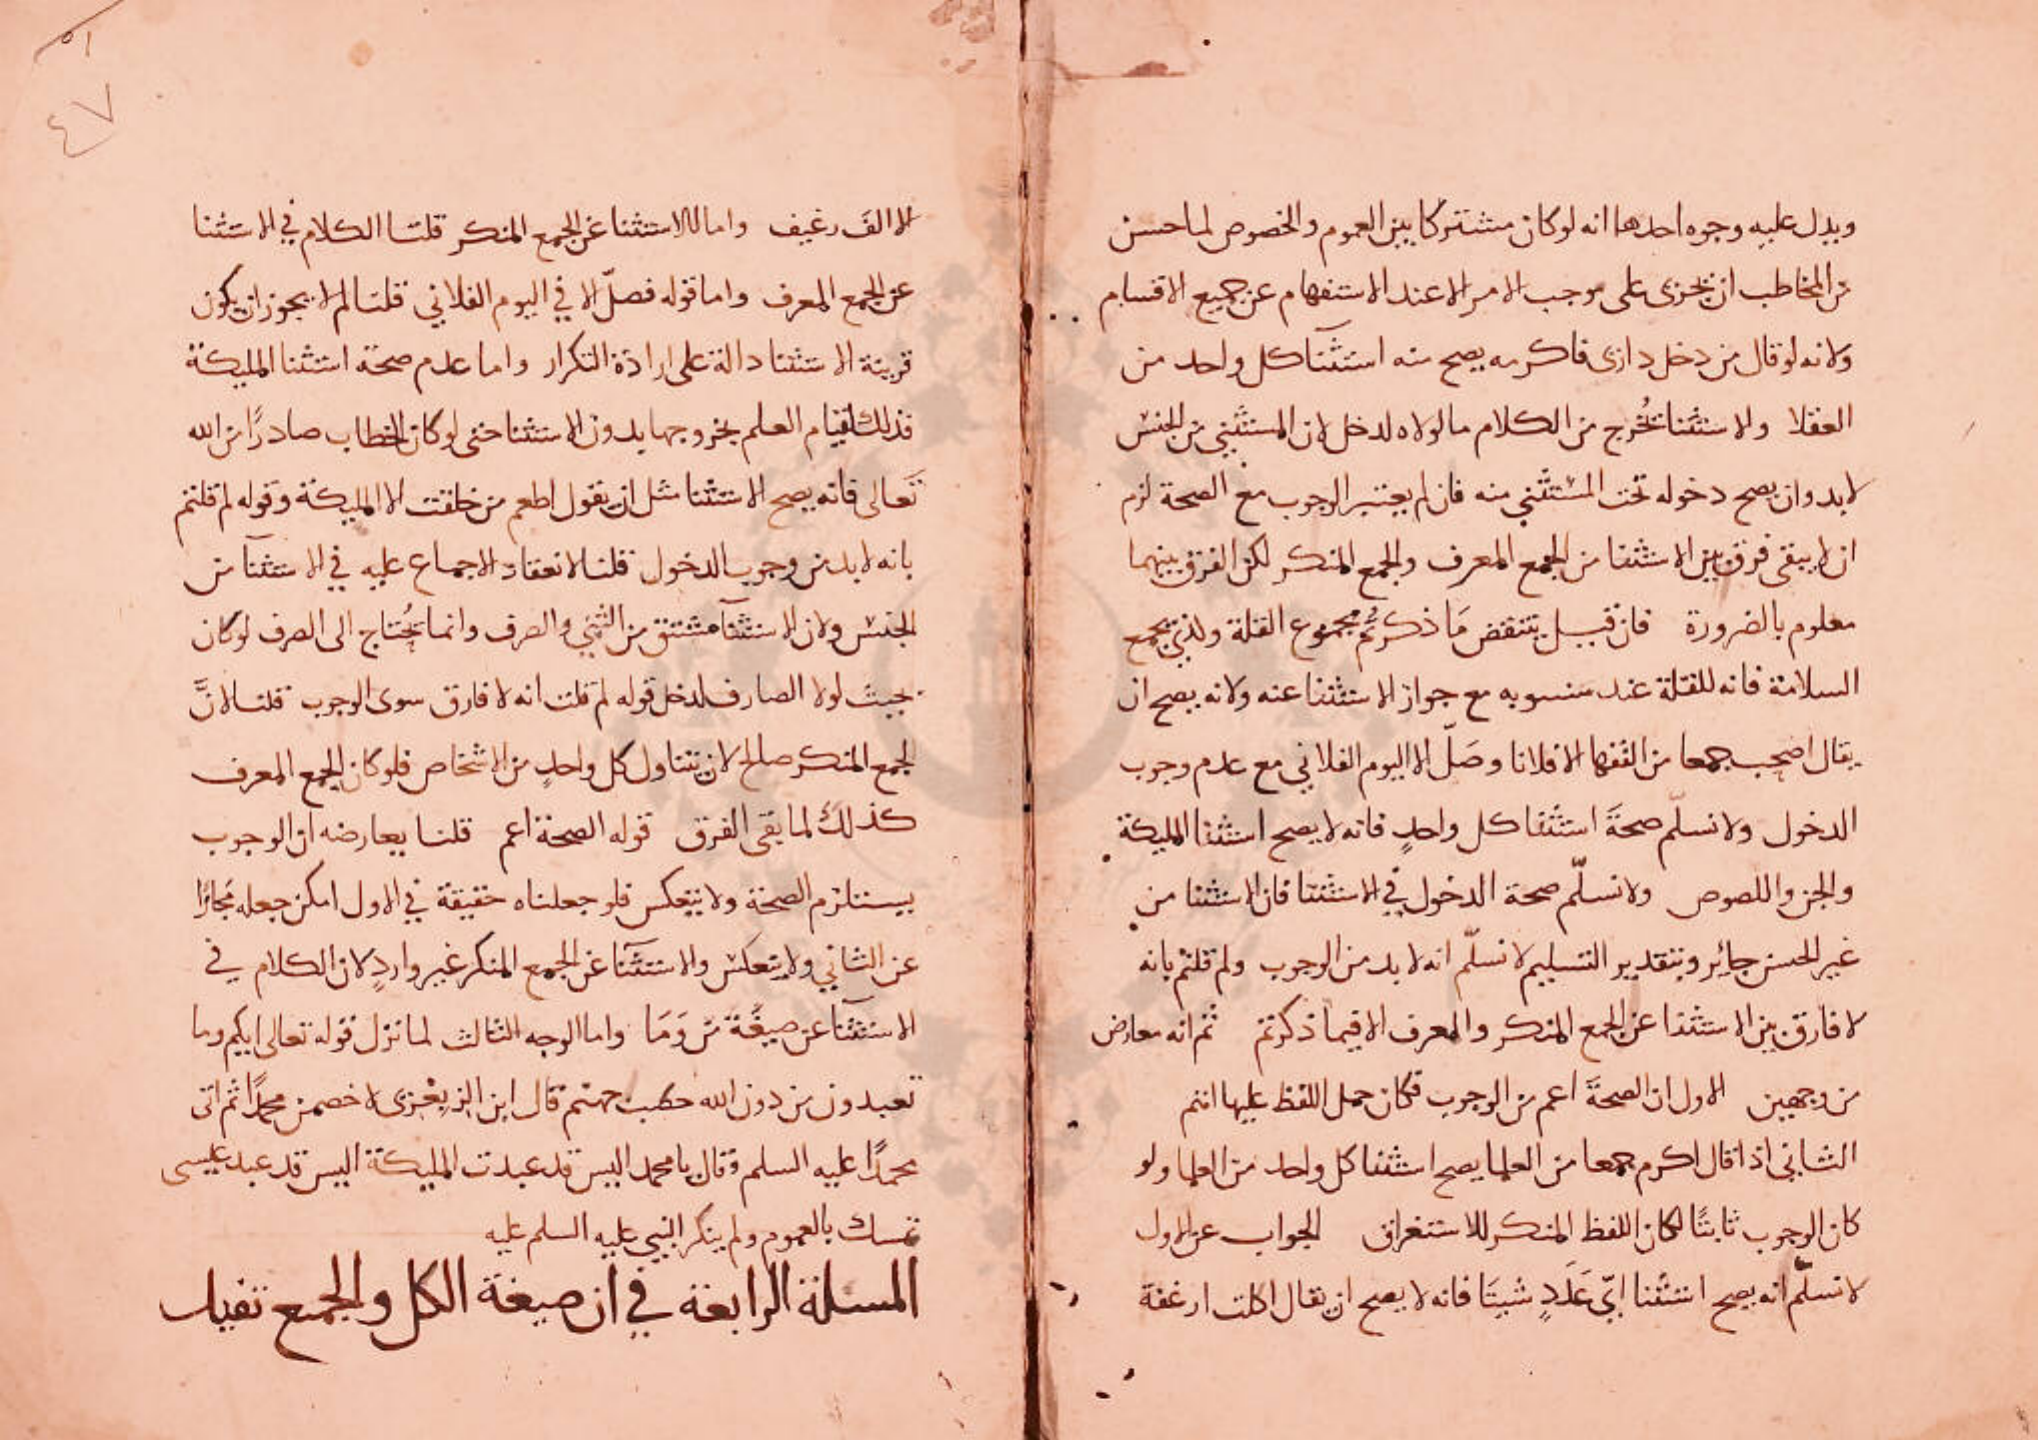 ويدل عليه وجوه احدها انه لو كان مشتركا بين العموم والخصوص لما حسن
من المخاطب ان يجرى على موجب الامر الا عند الاستفهام عن جميع الاقسام
ولانه لو قال من دخل دارى فاكرمه يصح منه استثنآ كل واحد من
العقلا والاستثنا يُخرج من الكلام ما لولاه لدخل لان المستثنى من الجنس
لابد وان يصح دخوله تحت المستثنى منه فان لم يعتبر الوجوب مع الصحة لزم
ان لا يبقى فرق بين الاستثنا من الجمع المعرف والجمع المنكر لكن الفرق بينهما
معلوم بالضرورة فان قيل ينتقض مَا ذكرتم بجموع القلة والذى بجمع
السلامة فانه للقلة عند سيبويه مع جواز الاستثنا عنه ولانه يصح ان
يقال اصحب جمعا من الفقها الا فلانا وصَلّ الا اليوم الفلاني مع عدم وجوب
الدخول ولا نسلّم صحةَ استثنا كل واحدٍ فانه لا يصح استثنا المليكة
والجن واللصوص ولا نسلّم صحة الدخول في الاستثنا فان الاستثنا من
غير الجنس جايز وبتقدير التسليم لا نسلّم انه لا بد من الوجوب ولم قلتم بانه
لا فارق بين الاستثنا عن الجمع المنكر والمعرف الا فيما ذكرتم ثم انه معارض
من وجهين الاول ان الصحةَ اعم من الوجوب فكان حمل اللفظ عليها اتم
الثاني اذا قال اكرم جمعا من العلما يصح استثنا كل واحد من العلما ولو
كان الوجوب ثابتًا لكان اللفظ المنكر للاستغراق الجواب عن الاول
لا نسلّم انه يصح استثنا ايّ عَدَدٍ شيتَا فانه لا يصح ان يقال اكلت ارغفة
الا الفَ رغيف واما الاستثنا عن الجمع المنكر قلنا الكلام في الاستثنا
عن الجمع المعرف واما قوله فصلّ الا في اليوم الفلاني قلنا لم لا يجوز ان يكون
قرينة الاستثنا دالة على ارادة التكرار واما عدم صحة استثنا المليكة
فذلك لقيام العلم بخروجها بدون الاستثنا حتى لو كان الخطاب صادرًا من الله
تَعالى فانه يصح الاستثنا مثل ان يقول اطعم من خلقت الا المليكة وقوله لم قلتم
بانه لا بد من وجوب الدخول قلنا لانعقاد الاجماع عليه في الاستثنآ من
الجنس ولان الاستثنآ مشتق من الثني والصرف وانما يُحتاج الى الصرف لو كان
بحيث لولا الصارف لدخل قوله لم قلت انه لا فارق سوى الوجوب قلنا لانَّ
الجمع المنكر صالح لان يتناول كل واحدٍ من الاشخاص فلو كان الجمع المعرف
كذلك لما بقى الفرق قوله الصحة اعم قلنا يعارضه ان الوجوب
يستلزم الصحة ولا ينعكس فلو جعلناه حقيقة في الاول امكن جعله مجازًا
عن الثاني ولا ينعكس والاستثنآ عن الجمع المنكر غير واردٍ لان الكلام في
الاستثنآ عن صيغة مَن وَمَا واما الوجه الثالث لما نزل قوله تعالى انكم وما
تعبدون من دون الله حصب جهنم قال ابن الزبعرى لاخصمن محمدًا ثم اتى
محمدًا عليه السلم وقال يا محمد اليس قد عبدت المليكة اليس قد عبد عيسى
تمسك بالعموم ولم ينكر النبي عليه السلم عليه
المسلة الرابعة في ان صيغة الكل والجمع تفيد
٥١
٤٧